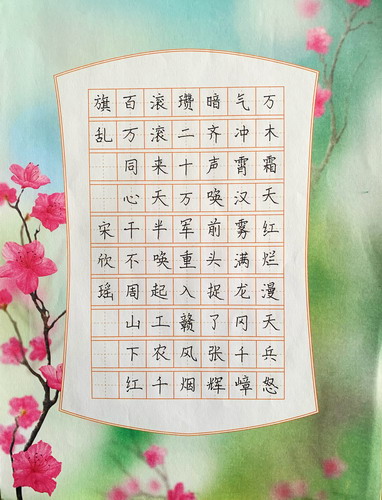 万木霜天红烂漫天兵怒
气冲霄汉雾满龙冈千嶂
暗齐声唤前头捉了张辉
瓒二十万军重入赣风烟
滚滚来天半唤起工农千
百万同心干不周山下红
旗乱 宋欣瑶